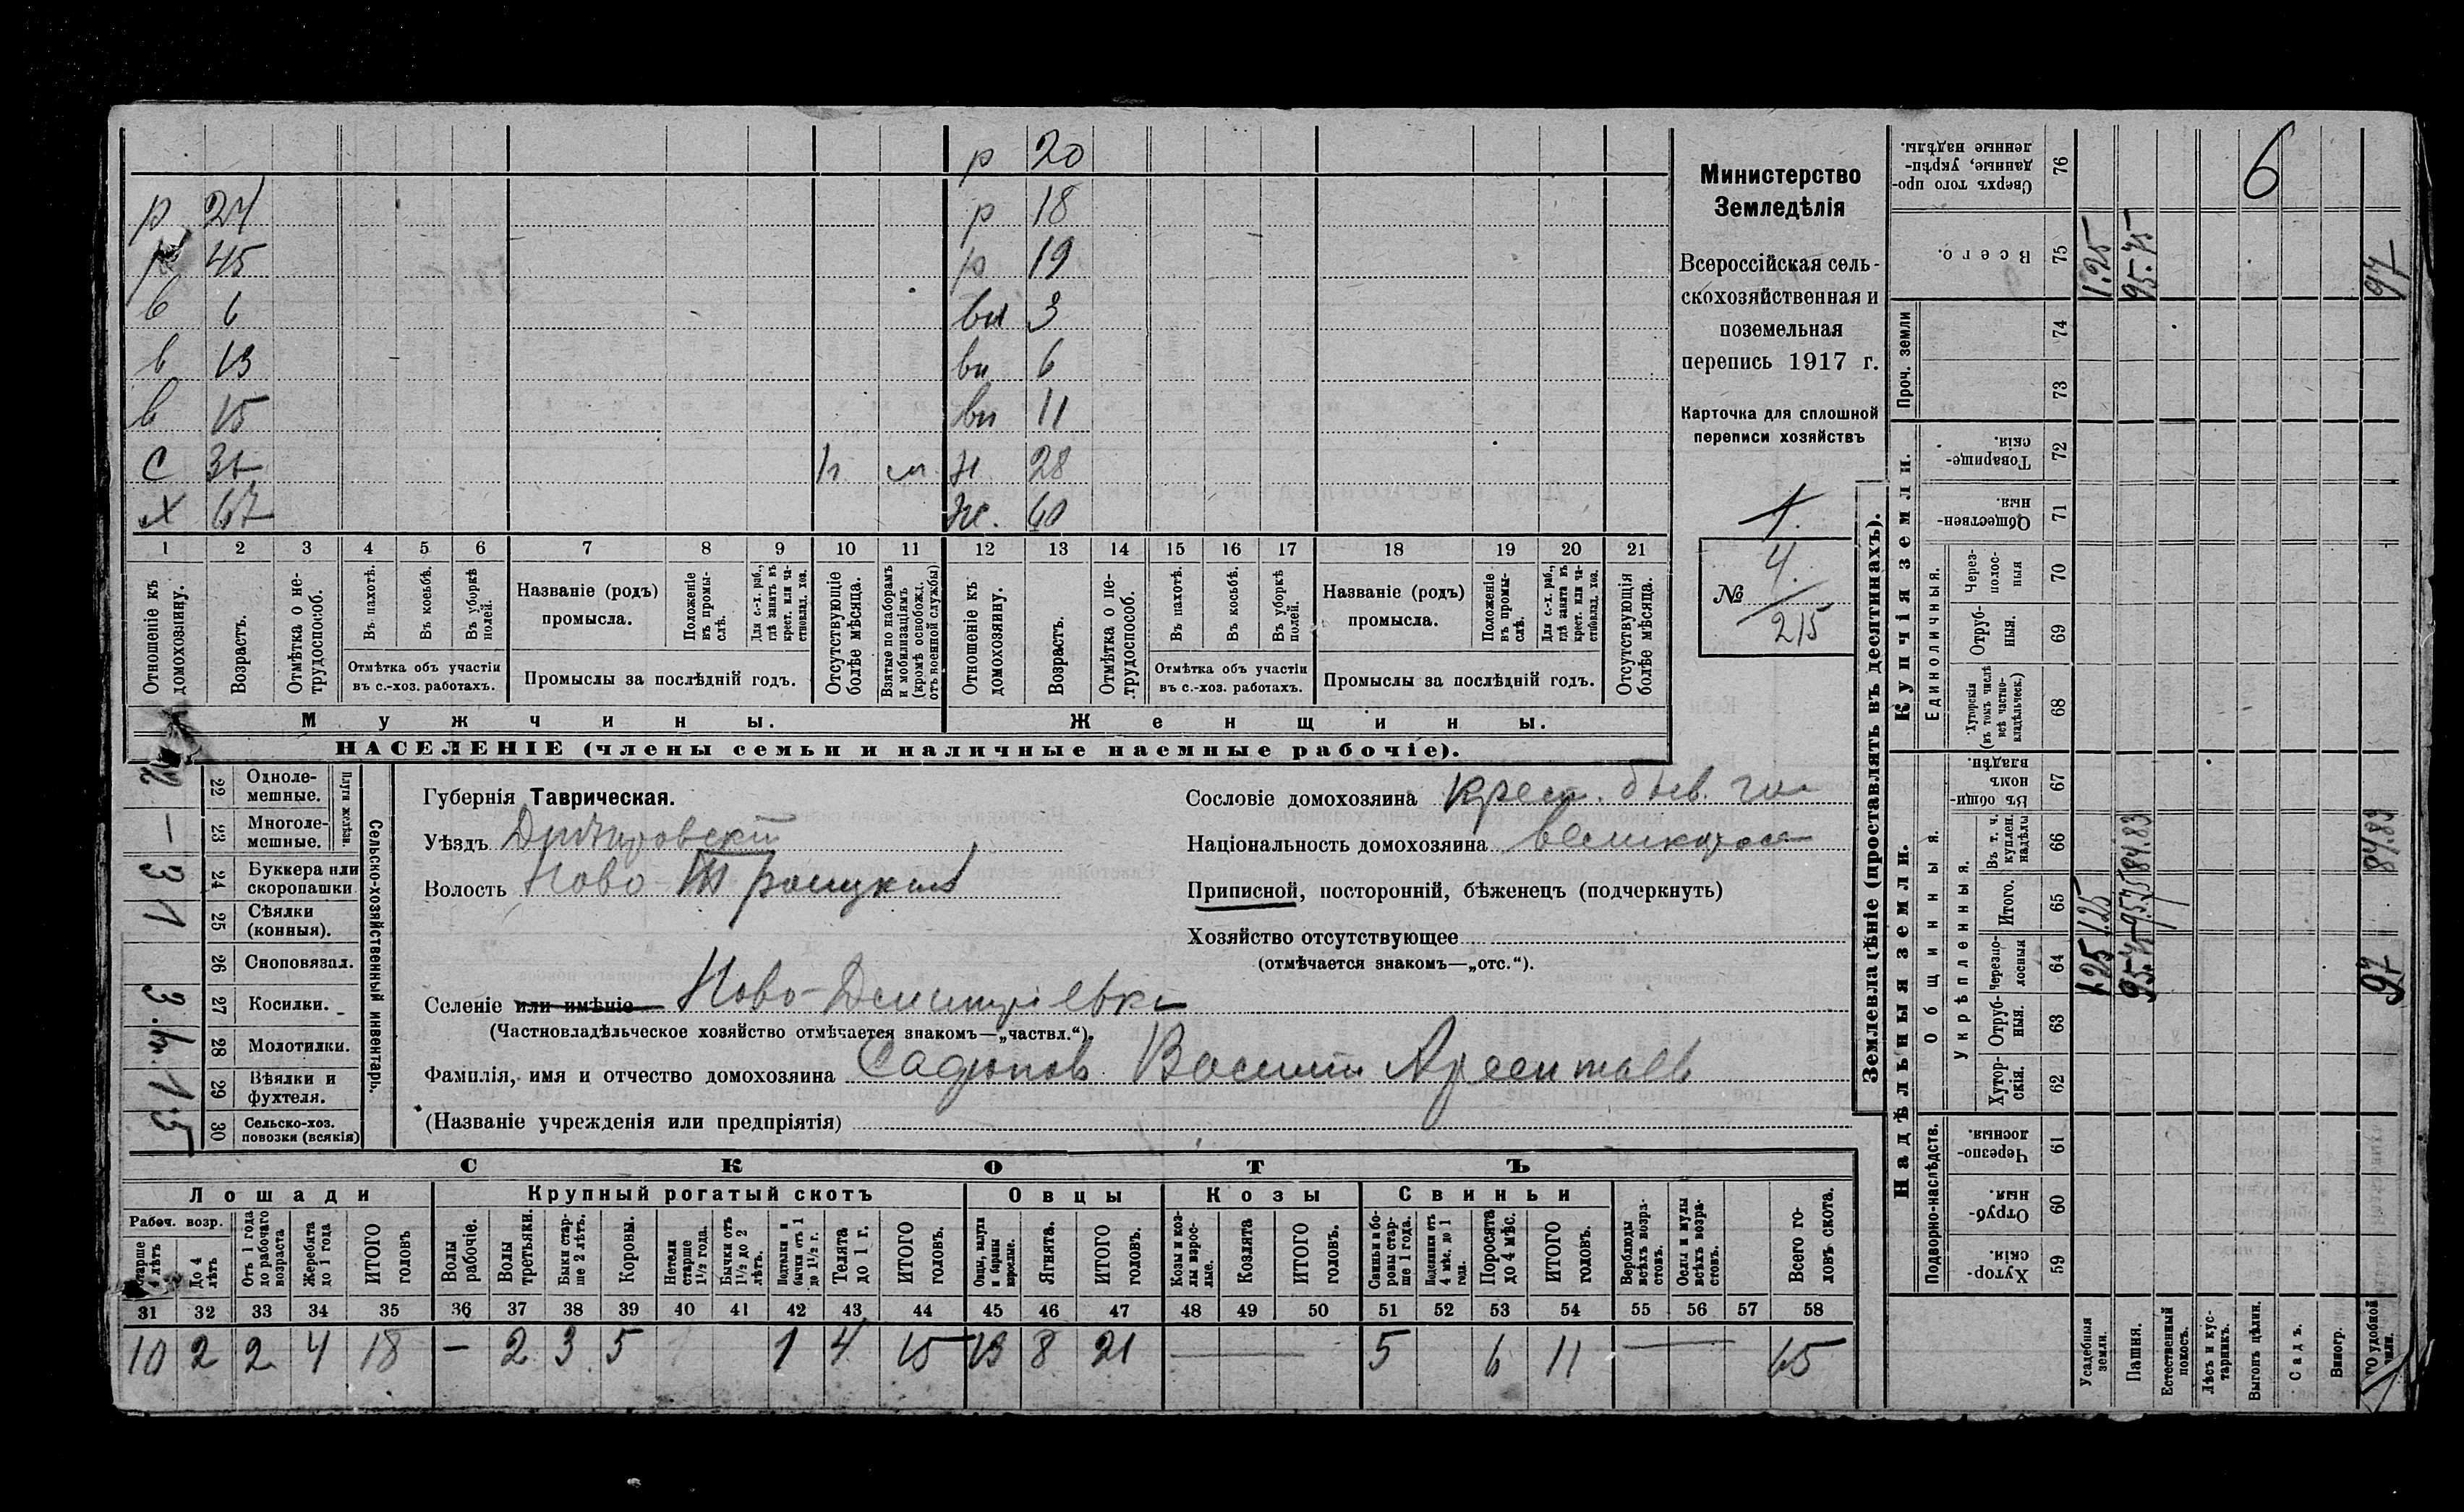 р 20
р 24 р 18
р 45 р 19
в 6 вн 3
в 13 вн 6
в 15 вн 11
С н м ж 28
х 67 ж. 60
1 2 3 4 5 6 7 8 9 10 11 12 13 14 15 16 17 18 19 20 21
Отношеніе къ домохозяину.
Возрастъ.
Отмѣтка о не-трудоспособ.
Въ пахотѣ.
Въ косьбѣ.
Въ уборкѣ полей.
Отмѣтка объ участіи
въ с.-хоз. работахъ.
Названіе (родъ)
промысла.
Положеніе въ промы-слѣ.
Для с.-х. раб., гдѣ занятъ въ крест. или ча-стновлад. хоз.
Промыслы за послѣдній годъ.
Отсутствующіе болѣе мѣсяца.
Взятые по наборамъ и мобилизаціямъ (кромѣ освобожд. отъ военной службы)
Отношеніе къ домохозяину.
Возрастъ.
Отмѣтка о не-трудоспособ.
Въ пахотѣ.
Въ косьбѣ.
Въ уборкѣ полей.
Отмѣтка объ участіи
въ с.-хоз. работахъ.
Названіе (родъ)
промысла.
Положеніе въ промы-слѣ.
Для с.-х. раб., гдѣ занята въ крест. или ча-стновлад. хоз.
Промыслы за послѣдній годъ.
Отсутствующія болѣе мѣсяца.
Мужчины.
Женщины.
НАСЕЛЕНІЕ (члены семьи и наличные наемные рабочіе).
Министерство
Земледѣлія
Всероссійская сель-
скохозяйственная и
поземельная
перепись 1917 г.
Карточка для сплошной
переписи хозяйствъ
1.
№ 4.
215
22 Одноле-мешные.
— 23 Многоле-мешные.
Плуги желѣзн.
3 24 Буккера или скоропашки
1 25 Сѣялки (конныя).
26 Сноповязал.
3 27 Косилки.
28 Молотилки.
1 29 Вѣялки и фухтеля.
5 30 Сельско-хоз. повозки (всякія)
Сельско-хозяйственный инвентарь.
Губернія Таврическая.
Уѣздъ Днѣпровскій
Волость Ново Троицкая
Сословіе домохозяина крест. быв. гос
Національность домохозяина великорос
Приписной, посторонній, бѣженецъ (подчеркнуть)
Хозяйство отсутствующее
(отмѣчается знакомъ—„отс.“).
Селеніе или имѣніе Ново-Дмитріевка
(Частновладѣльческое хозяйство отмѣчается знакомъ—„частвл.“).
Фамилія, имя и отчество домохозяина
(Названіе учрежденія или предпріятія)
СКОТЪ
Лошади
Крупный рогатый скотъ
Овцы
Козы
Свиньи
Рабоч. возр.
старше 4 лѣтъ
До 4 лѣтъ
Отъ 1 года до рабочаго возраста
Жеребята до 1 года
ИТОГО головъ
Волы рабочіе.
Волы третьяки.
Быки стар-ше 2 лѣтъ.
Коровы.
Нетели старше 1½ года.
Бычки отъ 1½ до 2 лѣтъ.
Подтелки и бычки отъ 1 до 1½ г.
Телята до 1 г.
ИТОГО головъ.
Овцы, валухи и бараны взрослые.
Ягнята.
ИТОГО головъ.
Козы и коз-лы взрос-лые.
Козлята
ИТОГО головъ.
Свиньи и бо-ровы стар-ше 1 года.
Подсвинки отъ 4 мѣс. до 1 года.
Поросята до 4 мѣс.
ИТОГО головъ.
Верблюды всѣхъ возра-стовъ.
Ослы и мулы всѣхъ возра-стовъ.
Всего го-ловъ скота.
31 32 33 34 35 36 37 38 39 40 41 42 43 44 45 46 47 48 49 50 51 52 53 54 55 56 57 58
10 2 2 4 18 — 2 3 5 1 4 15 13 8 21 — 5 6 11 — 65
Землевладѣніе (проставлять въ десятинахъ).
Надѣльныя земли.
Купчія земли.
Проч. земли
Подворно-наслѣдств.
Общинныя.
Укрѣпленныя.
Единоличныя.
Хутор-скія. 59
Отруб-ныя. 60
Черезпо-лосныя. 61
Хутор-скія. 62
Отруб-ныя. 63
Черезпо-лосныя 64
Итого. 65
Въ т. ч. куплен. надѣлы 66
Въ общин-номъ владѣн. 67
Хуторскія (въ томъ числѣ всѣ частно-владѣльческ.) 68
Отруб-ныя. 69
Через-полос-ныя 70
Обществен-ныя. 71
Товарище-скія. 72
73
74
Всего. 75
Сверхъ того про-данные, укрѣп-ленные надѣлы. 76
6
Усадебныя земли. 1.25 1.25 1.25
Пашня. 95.75 95.75 84.83 95.75
Естественный покосъ.
Лѣсъ и кус-тарникъ.
Выгонъ цѣлин.
Садъ.
Виногр.
удобной 97 84.83 97